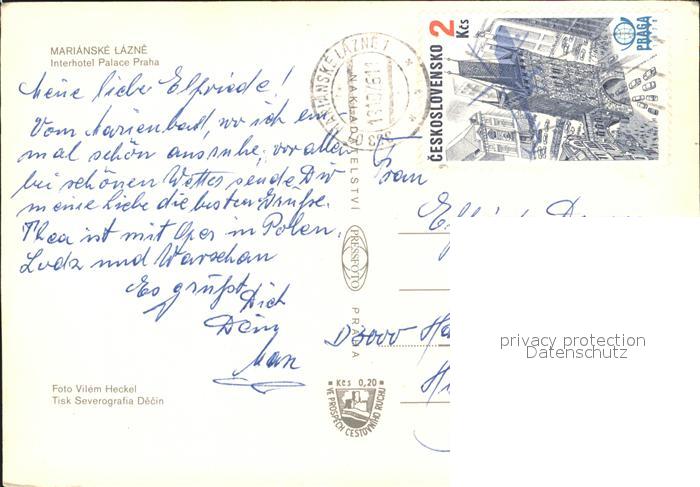 MARIÁNSKÉ LÁZNĚ
Interhotel Palace Praha
Meine liebe Elfriede!
Vom Marienbad, wo ich ein-
mal schön ausruhe, vor allem
bei schönem Wetter sende Dir
meine liebe die besten Grüße.
Thea ist mit Opa in Polen,
Lodz und Warschau
Es grüßt Dich
Max
Foto Vilém Heckel
Tisk Severografia Děčín
MARIÁNSKÉ LÁZNĚ 1
NAKLADATELSTVÍ
PRESSFOTO
PRAHA
Kčs 0,20
VE PROSPĚCH CESTOVNÍHO RUCHU
ČESKOSLOVENSKO 2 Kčs
PRAGA
Frau
D3000 Ha
privacy protection
Datenschutz